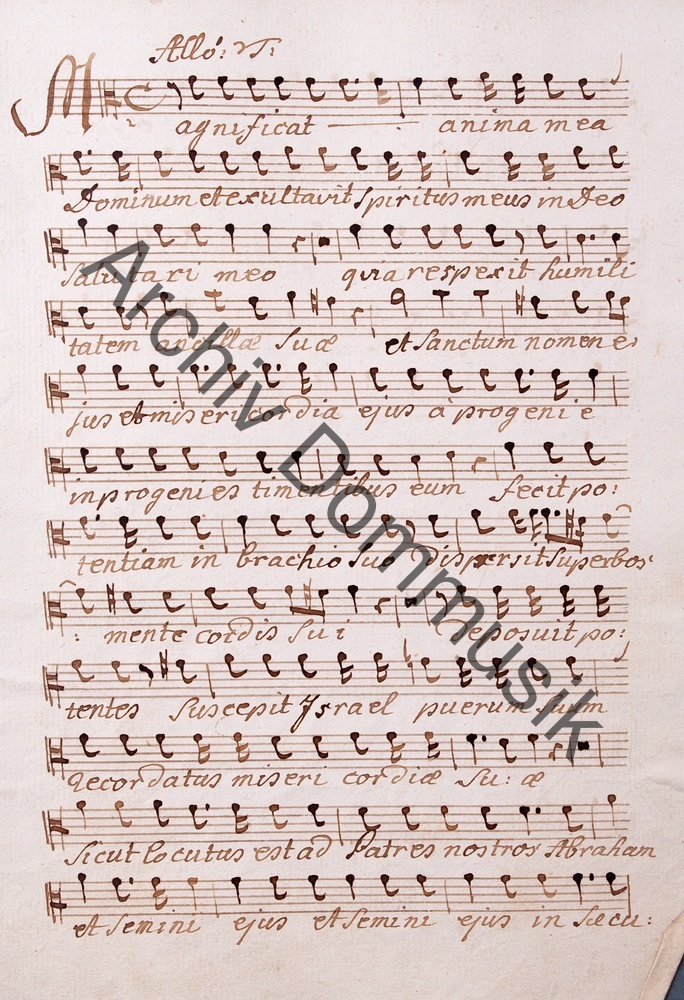 Allo: VT:
Magnificat anima mea
Dominum et exultavit Spiritus meus in Deo
Salutari meo quia respexit humili
tatem ancillæ Suæ et Sanctum nomen e
jus et misericordia ejus à progenie
in progenies timentibus eum fecit po:
tentiam in brachio Suo dispersit Superbos
: mente cordis Sui Deposuit po:
tentes Suscepit Jsrael puerum Suum
recordatus miseri cordiæ Su: æ
Sicut locutus est ad Patres nostros Abraham
et Semini ejus et Semini ejus in Sæcu:
Archiv Dommusik